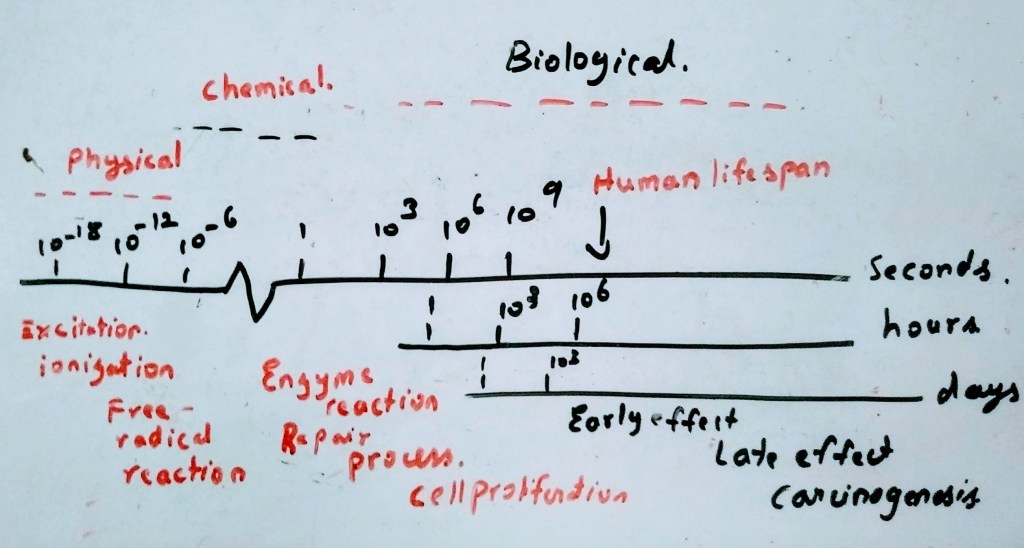 Biological.
chemical.
Physical
Human lifespan
10-18 10-12 10-6 1 10³ 10⁶ 10⁹
Seconds.
1 10³ 10⁶
hours
1 10³
days
Excitation.
ionization
Free-
radical
reaction
Enzyme
reaction
Repair
process.
cell prolifertion
Early effect
Late effect
carcinogenesis